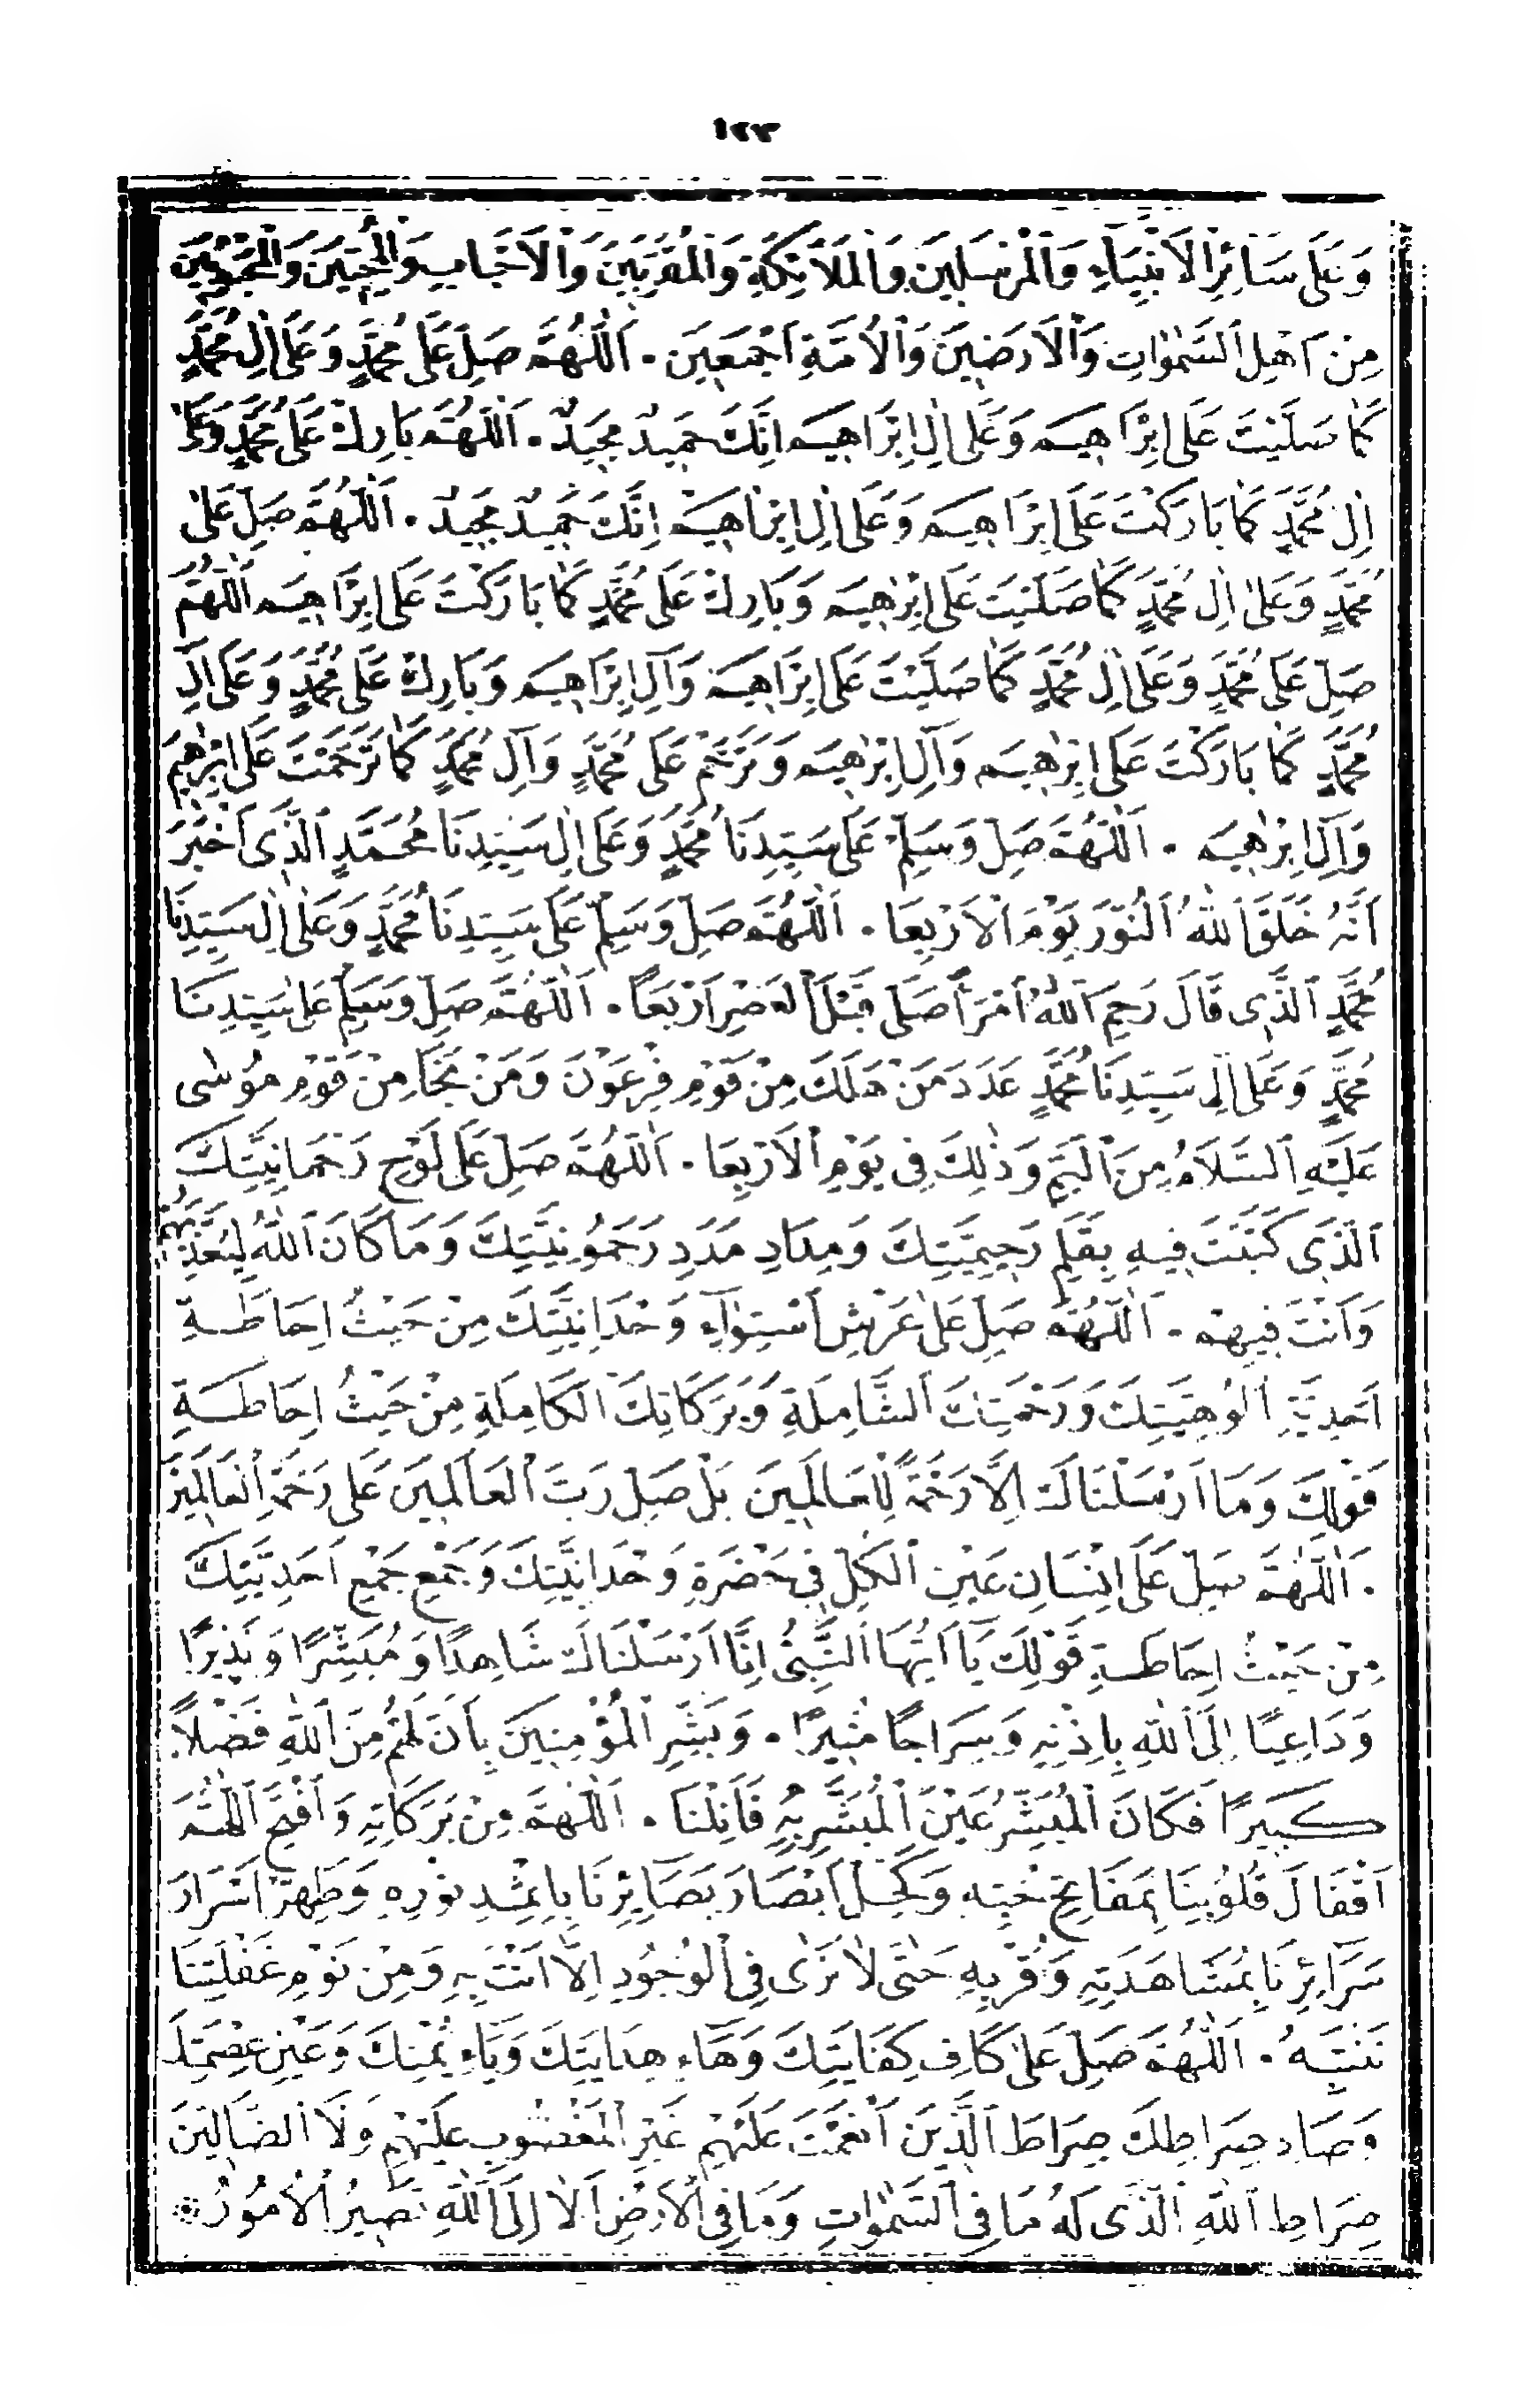 ١٢٣
وَعَلَى سَائِرِ الْاَنْبِيَاءِ وَالْمُرْسَلِينَ وَالْمَلَائِكَةِ وَالْمُقَرَّبِينَ وَالْاَحْبَابِ وَالْمُحِبِّينَ وَالْمَحْبُوبِينَ
مِنْ اَهْلِ السَّمٰوَاتِ وَالْاَرَضِينَ وَالْاُمَّةِ اَجْمَعِينَ . اَللّٰهُمَّ صَلِّ عَلَى مُحَمَّدٍ وَعَلَى اٰلِ مُحَمَّدٍ
كَمَا صَلَّيْتَ عَلَى اِبْرَاهِيمَ وَعَلَى اٰلِ اِبْرَاهِيمَ اِنَّكَ حَمِيدٌ مَجِيدٌ . اَللّٰهُمَّ بَارِكْ عَلَى مُحَمَّدٍ وَعَلَى
اٰلِ مُحَمَّدٍ كَمَا بَارَكْتَ عَلَى اِبْرَاهِيمَ وَعَلَى اٰلِ اِبْرَاهِيمَ اِنَّكَ حَمِيدٌ مَجِيدٌ . اَللّٰهُمَّ صَلِّ عَلَى
مُحَمَّدٍ وَعَلَى اٰلِ مُحَمَّدٍ كَمَا صَلَّيْتَ عَلَى اِبْرٰهِيمَ وَبَارِكْ عَلَى مُحَمَّدٍ كَمَا بَارَكْتَ عَلَى اِبْرَاهِيمَ اَللّٰهُمَّ
صَلِّ عَلَى مُحَمَّدٍ وَعَلَى اٰلِ مُحَمَّدٍ كَمَا صَلَّيْتَ عَلَى اِبْرَاهِيمَ وَآلِ اِبْرَاهِيمَ وَبَارِكْ عَلَى مُحَمَّدٍ وَعَلَى اٰلِ
مُحَمَّدٍ كَمَا بَارَكْتَ عَلَى اِبْرٰهِيمَ وَآلِ اِبْرٰهِيمَ وَتَرَحَّمْ عَلَى مُحَمَّدٍ وَآلِ مُحَمَّدٍ كَمَا تَرَحَّمْتَ عَلَى اِبْرٰهِيمَ
وَآلِ اِبْرٰهِيمَ . اَللّٰهُمَّ صَلِّ وَسَلِّمْ عَلَى سَيِّدِنَا مُحَمَّدٍ وَعَلَى اٰلِ سَيِّدِنَا مُحَمَّدٍ الَّذِى اَخْبَرَ
اَنَّهُ خَلَقَ اللّٰهُ النُّوْرَ يَوْمَ الْاَرْبِعَا . اَللّٰهُمَّ صَلِّ وَسَلِّمْ عَلَى سَيِّدِنَا مُحَمَّدٍ وَعَلٰى اٰلِ سَيِّدِنَا
مُحَمَّدٍ الَّذِى قَالَ رَحِمَ اللّٰهُ امْرَأً صَلَّى قَبْلَ الْعَصْرِ اَرْبَعًا . اَللّٰهُمَّ صَلِّ وَسَلِّمْ عَلٰى سَيِّدِنَا
مُحَمَّدٍ وَعَلَى اٰلِ سَيِّدِنَا مُحَمَّدٍ عَدَدَ مَنْ هَلَكَ مِنْ قَوْمِ فِرْعَوْنَ وَمَنْ نَجَا مِنْ قَوْمِ مُوْسٰى
عَلَيْهِ السَّلَامُ مِنَ الْيَمِّ وَذٰلِكَ فِى يَوْمِ الْاَرْبِعَا . اَللّٰهُمَّ صَلِّ عَلَى لَوْحِ رَحْمَانِيَّتِكَ
الَّذِى كَتَبْتَ فِيهِ بِقَلَمِ رَحِيمِيَّتِكَ وَمِدَادِ مَدَدِ رَحَمُوْنِيَّتِكَ وَمَا كَانَ اللّٰهُ لِيُعَذِّبَهُمْ
وَاَنْتَ فِيهِمْ . اَللّٰهُمَّ صَلِّ عَلٰى عَرْشِ اسْتِوَآءِ وَحْدَانِيَّتِكَ مِنْ حَيْثُ اِحَاطَةِ
اَحَدِيَّةِ اُلُوهِيَّتِكَ وَرَحْمَتِكَ الشَّامِلَةِ وَبَرَكَاتِكَ الْكَامِلَةِ مِنْ حَيْثُ اِحَاطَةِ
قَوْلِكَ وَمَا اَرْسَلْنَاكَ اِلَّا رَحْمَةً لِلْعَالَمِينَ بَلْ صَلِّ رَبَّ الْعَالَمِينَ عَلَى رَحْمَةِ الْعَالَمِينَ
. اَللّٰهُمَّ صَلِّ عَلَى اِنْسَانِ عَيْنِ الْكُلِّ فِى حَضْرَةِ وَحْدَانِيَّتِكَ وَجَمْعِ جَمْعِ اَحَدِيَّتِكَ
مِنْ حَيْثُ اِحَاطَةِ قَوْلِكَ يَآ اَيُّهَا النَّبِىُّ اِنَّا اَرْسَلْنَاكَ شَاهِدًا وَمُبَشِّرًا وَنَذِيرًا
وَدَاعِيًا اِلَى اللّٰهِ بِاِذْنِهِ وَسِرَاجًا مُنِيرًا . وَبَشِّرِ الْمُؤْمِنِينَ بِاَنَّ لَهُمْ مِنَ اللّٰهِ فَضْلًا
كَبِيرًا فَكَانَ الْمُبَشِّرُ عَيْنَ الْمُبَشَّرِ بِهِ فَاَنِلْنَا . اَللّٰهُمَّ مِنْ بَرَكَاتِهِ وَافْتَحِ اللّٰهُمَّ
اَقْفَالَ قُلُوبِنَا بِمَفَاتِحِ حُبِّهِ وَكَحِّلْ اَبْصَارَ بَصَائِرِنَا بِاِثْمِدِ نُوْرِهِ وَطَهِّرْ اَسْرَارَ
سَرَآئِرِنَا بِمُشَاهَدَتِهِ وَقُرْبِهِ حَتّٰى لَا نَرٰى فِى الْوُجُودِ اِلَّا اَنْتَ بِهِ وَمِنْ نَوْمِ غَفْلَتِنَا
نَنْتَبِهُ . اَللّٰهُمَّ صَلِّ عَلٰى كَافِ كِفَايَتِكَ وَهَاءِ هِدَايَتِكَ وَيَاءِ يُمْنِكَ وَعَيْنِ عِصْمَتِكَ
وَصَادِ صِرَاطِكَ صِرَاطَ الَّذِينَ اَنْعَمْتَ عَلَيْهِمْ غَيْرِ الْمَغْضُوبِ عَلَيْهِمْ وَلَا الضَّالِّينَ
صِرَاطِ اللّٰهِ الَّذِى لَهُ مَا فِى السَّمٰوَاتِ وَمَا فِى الْاَرْضِ اَلَا اِلَى اللّٰهِ تَصِيرُ الْاُمُوْرُ *